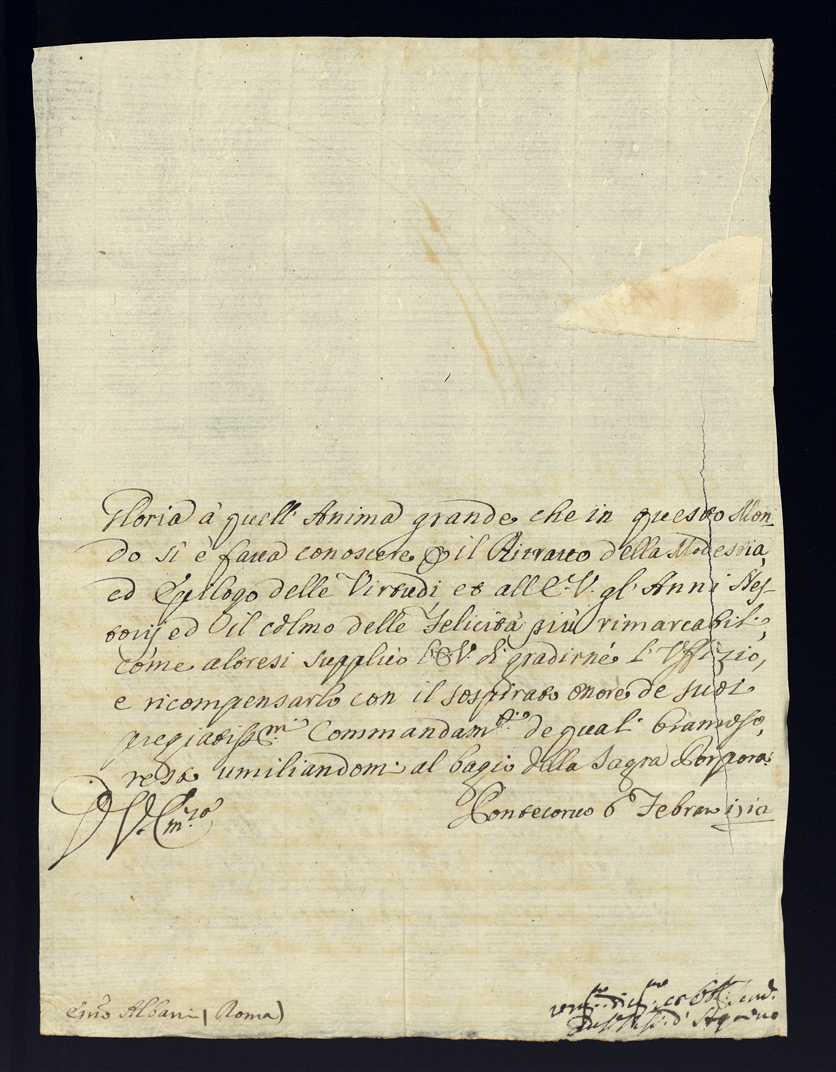 Gloria à quell' Anima grande che in questo Mon
do si è fatta conoscere p il Ritratto della Modestia,
ed Epilogo delle Virtudi et all' E. V. gl' Anni Nes
torij ed il colmo delle Felicità più rimarcabili
come altresi supplico l' E. V. di gradirne l' Uffizio,
e ricompensarlo con il sospirato onore de suoi
pregiatiss.mi Commandam.ti de quali bramoso,
resto umiliandomi al bagio della Sagra Porpora.
D V. Em.za
Pontecorvo 6 Febraro 1712
Em̃o Albani (Roma)
d' Aquino